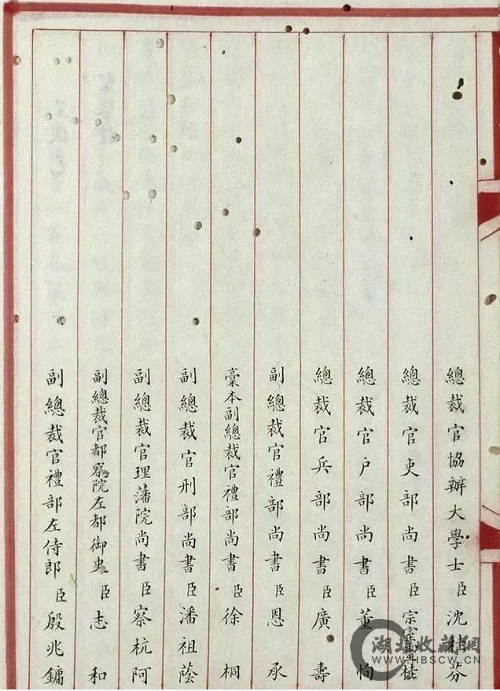 總裁官協辦大學士臣沈桂芬
總裁官吏部尚書臣宗室靈桂
總裁官户部尚書臣董恂
總裁官兵部尚書臣廣壽
副總裁官禮部尚書臣恩承
稾本副總裁官禮部尚書臣徐桐
副總裁官刑部尚書臣潘祖蔭
副總裁官理藩院尚書臣察杭阿
副總裁官都察院左都御史臣志和
副總裁官禮部左侍郎臣殷兆鏞
湖北收藏网
WWW.HBSCW.CN